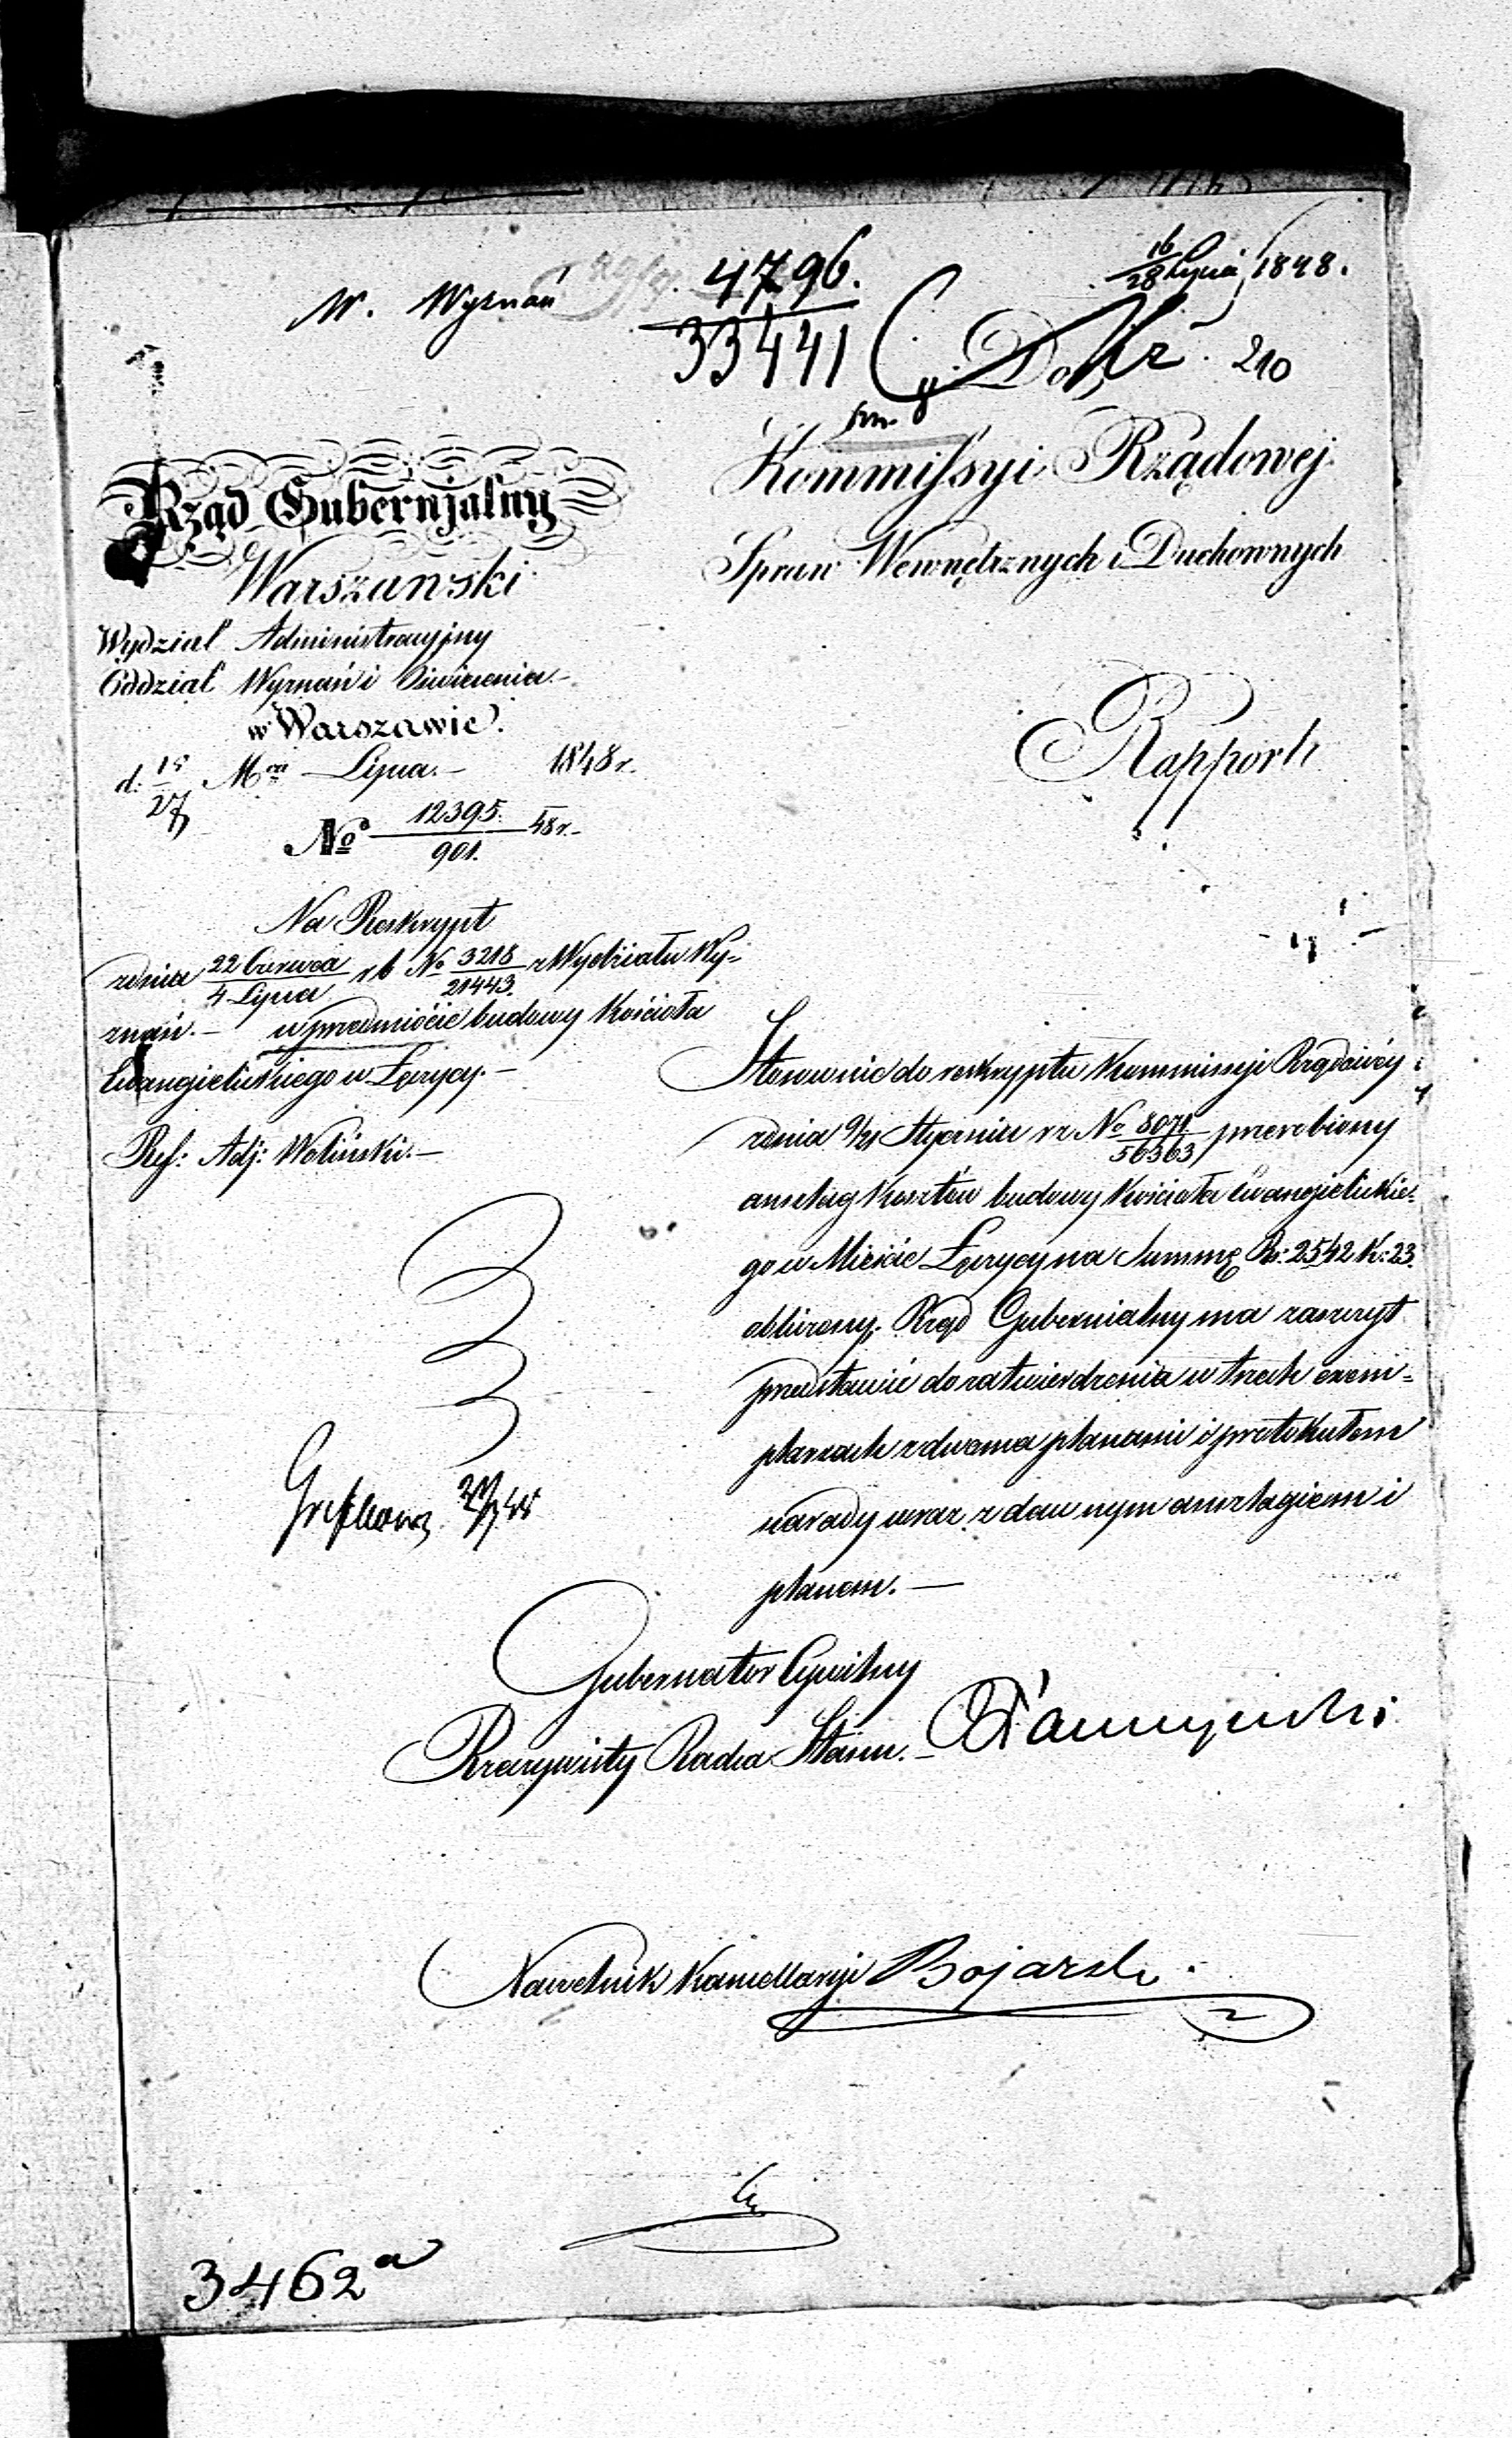 W. Wyznań
4796.
33441
16/28 Lipca 1848.
Do
210
Rząd Gubernjalny
Warszawski
Wydział Administracyjny
Oddział Wyznań i Oświecenia.
w Warszawie.
d. 15/27 Mca Lipca. 1848 r.
No 12395./901. 48 r.
Kommissyi Rządowej
Spraw Wewnętrznych i Duchownych
Rapport
Na Reskrypt
z dnia 22 Czerwca/4 Lipca r b No 3218/21443. z Wydziału Wy=
znań. — w przedmiocie budowy Kościoła
Ewangielickiego w Łęczycy. —
Ref: Adj: Woliński. —
Stosownie do reskryptu Kommissyi Rządowéj
z dnia 9/21 Stycznia r z No 8071/56363 przerobiony
anszlag kosztów budowy Kościoła Ewangielickie=
go w Mieście Łęczycy na Summę Rs: 2542 K: 23.
obliczony. Rząd Gubernialny ma zaszczyt
przedstawić do zatwierdzenia w trzech exem=
plarzach z dwoma planami i protokułem
narady wraz z dawnym anszlagiem i
planem. —
Gubernator Cywilny
Rzeczywisty Radca Stanu. —
Naczelnik Kancellaryi Bojarski
3462a